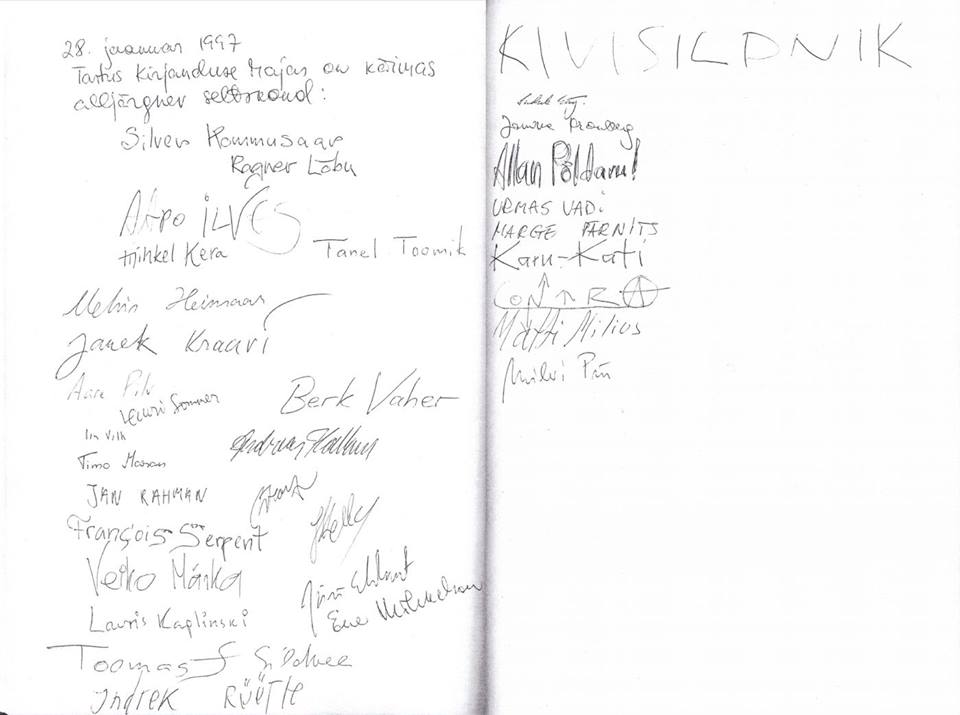 28. jaanuar 1997
Tartus Kirjanduse Majas on käimas
alljärgnev seltskond:
Silver Kommusaar
Ragner Lõbu
Aapo ILVES
Mihkel Kera
Tanel Toomik
Mehis Heinsaar
Janek Kraavi
Aare Pilv
Lauri Sommer
Berk Vaher
Iin Vilk
Andreas Kalkun
Timo Maran
JAN RAHMAN
Kelly
François Serpent
Veiko Märka
Jüri Ehlvest
Lauris Kaplinski
Ene Mihkelson
Toomas
Indrek RÜÜTLE
KIVISILDNIK
Jaanika Kronberg
Allan Põldaru!
URMAS VADI
MARGE PÄRNITS
Karu-Kati
CONTRA
Matti Milius
Milvi